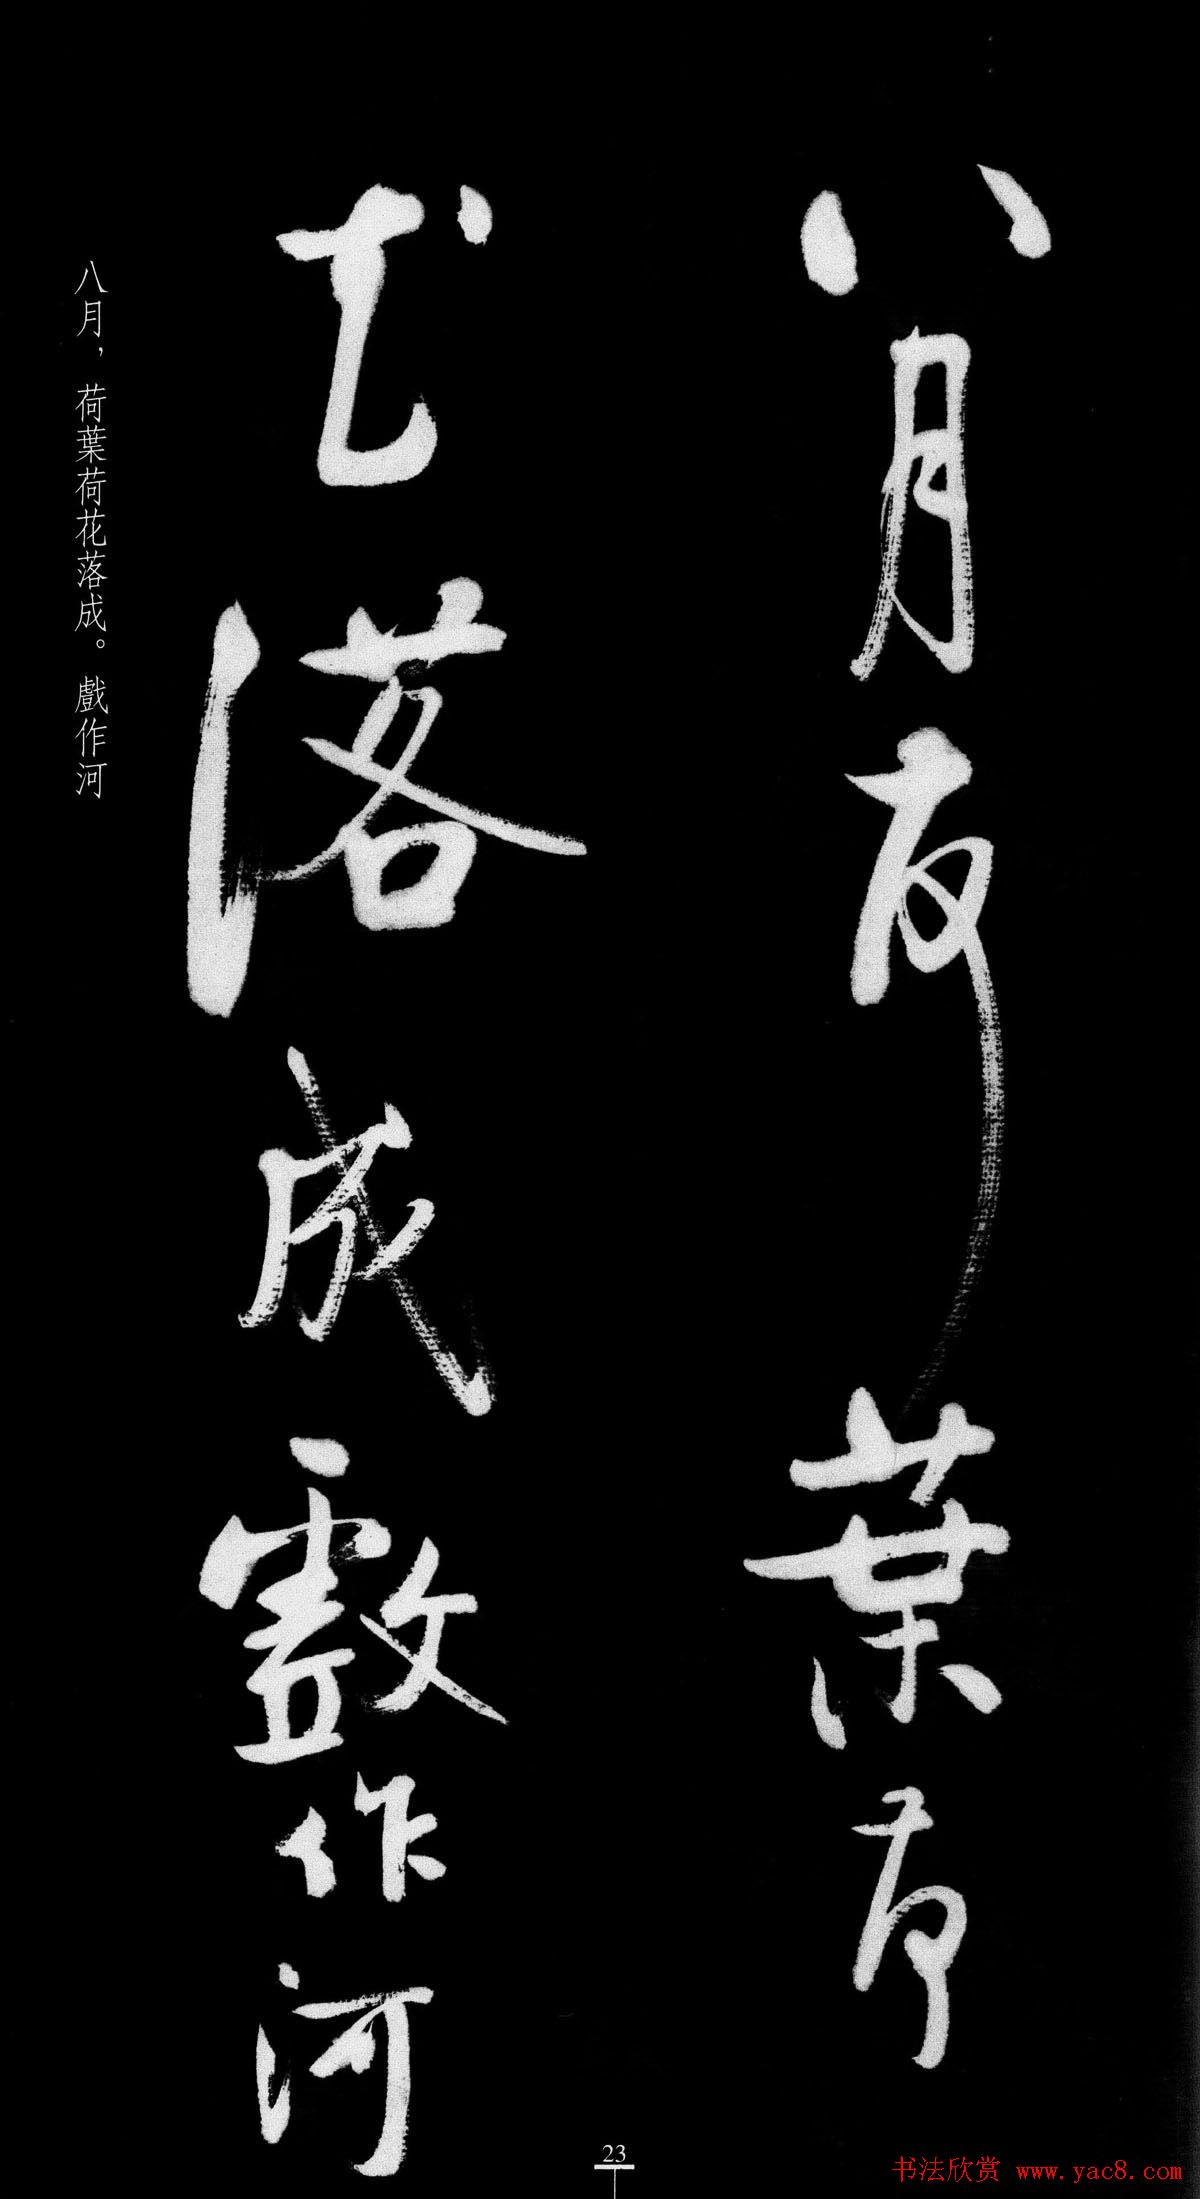 八月荷葉荷
花落成戲作河
八月，荷葉荷花落成。戲作河
23
书法欣赏 www.yac8.com